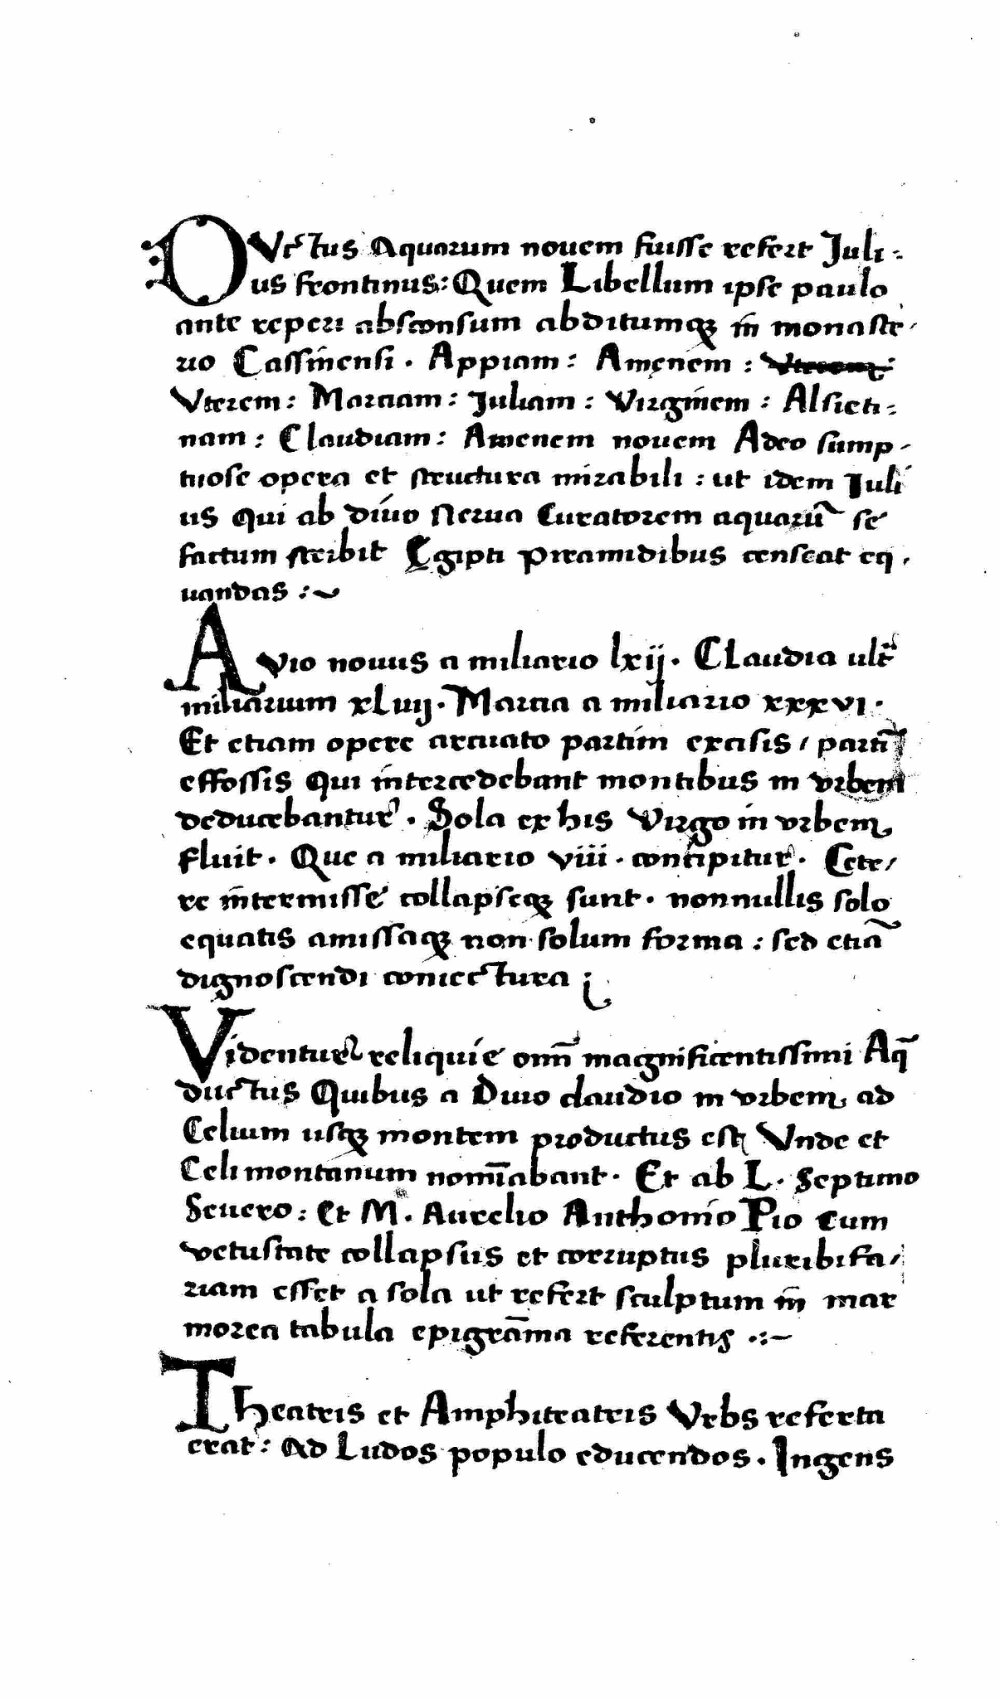 DVctus Aquarum nouem fuisse refert Juli-
us frontinus: Quem Libellum ipse paulo
ante reperi absconsum abditumqꝫ in monaste-
rio Cassinensi. Appiam: Amenem:
Vterem: Marciam: Juliam: Virginem: Alsieti-
nam: Claudiam: Amenem nouem Adeo sump-
tuose opera et structura mirabili: ut idem Juli
us qui ab diuo Nerua Curatorem aquarū se
factum scribit Egipti piramidibus censeat eq-
uandas:~
Anio nouus a miliario lxij. Claudia ult̃
miliarium xLviij. Marcia a miliario xxxvi.
Et etiam opere arcuato partim excisis / partĩ
effossis qui intercedebant montibus in vrbem
deducebantur. Sola ex his Virgo in vrbem
fluit. Que a miliario viii. concipitur. Cete/
re intermisse collapseqꝫ sunt. nonnullis solo
equatis amissaqꝫ non solum forma: sed etiã
dignoscendi coniectura;
Videntur reliquie om̃ magnificentissimi Aq̃
ductus Quibus a Diuo claudio in vrbem ad
Celium usqꝫ montem productus est Vnde et
Celimontanum nomĩabant. Et ab L. Septimo
Seuero: Et M. Aurelio Anthonio Pio cum
vetustate collapsus et corruptus pluribifa/
riam esset a sola ut refert sculptum in mar
morea tabula epigrãma referentis .:~
Theatris et Amphiteatris Vrbs referta
erat: Ad Ludos populo educendos. Ingens